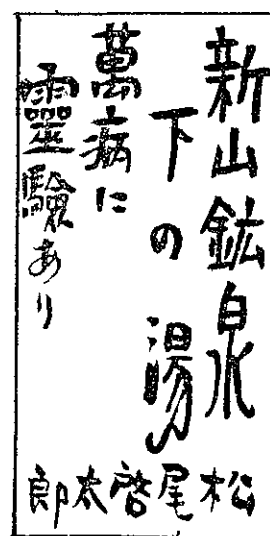 新山鉱泉
下の湯
萬病に
靈驗あり
松尾啓太郎